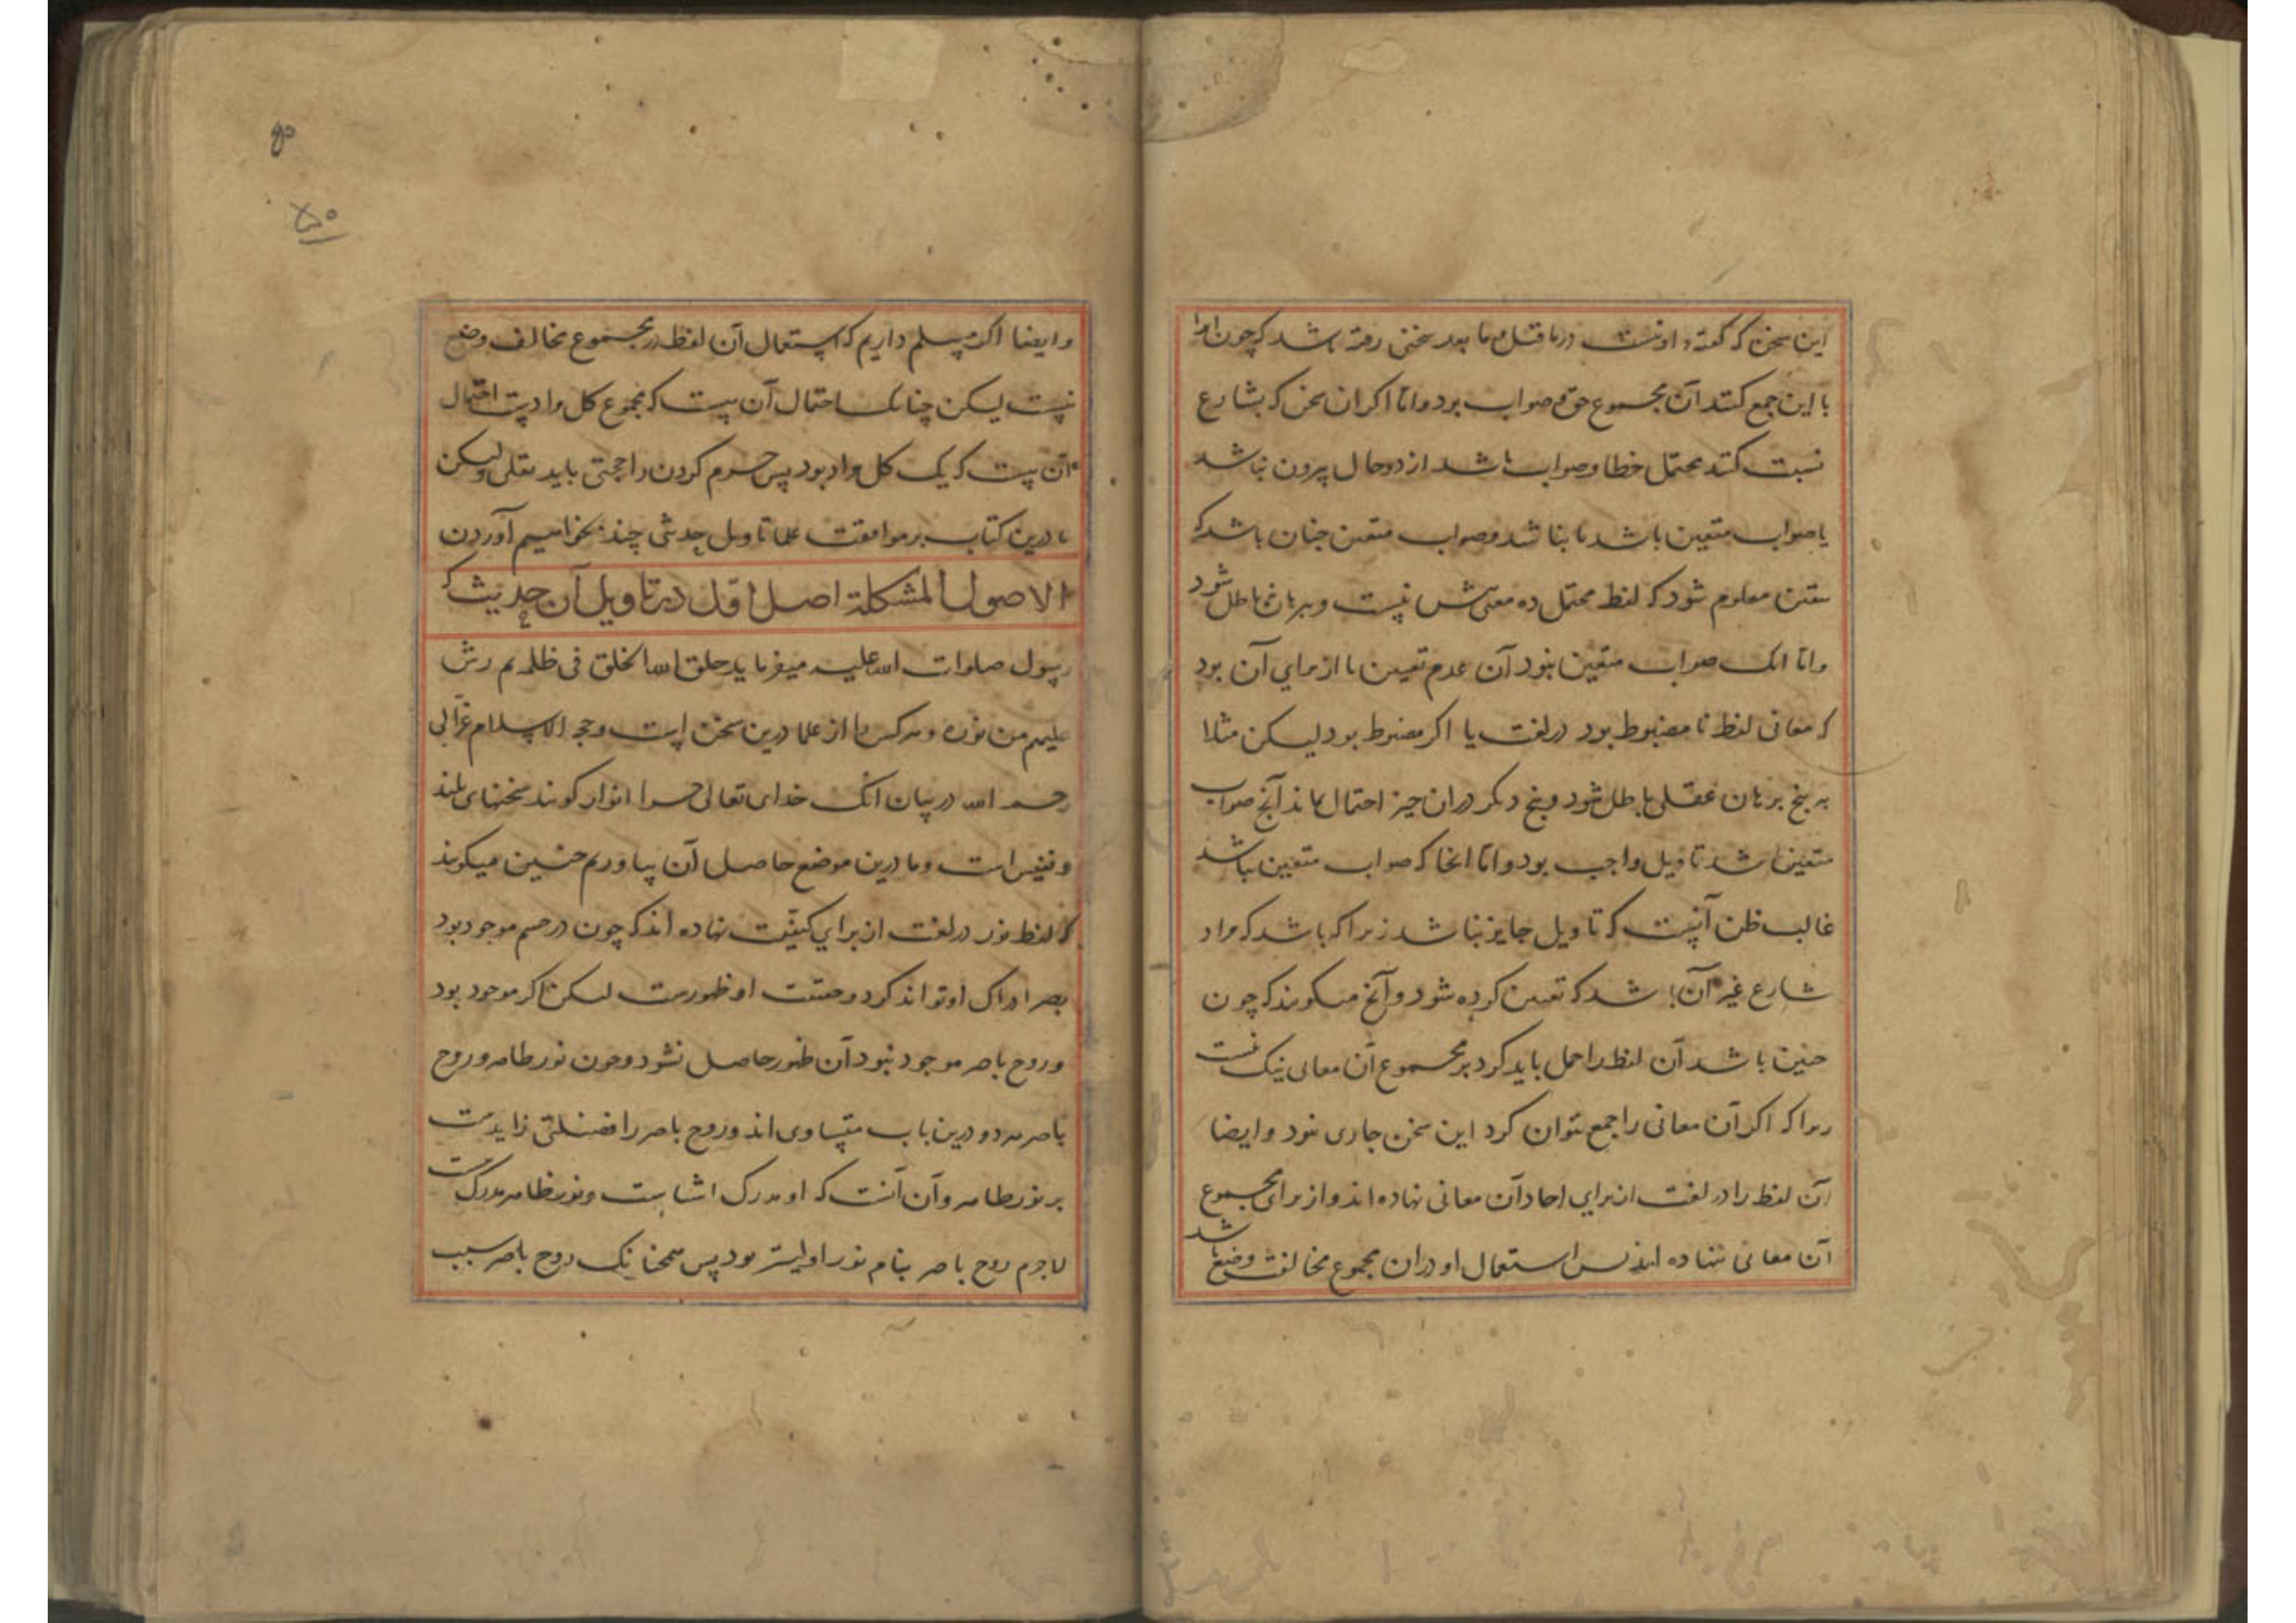 این سخن که گفته اوست در ما قبل و ما بعد سخنی رفته باشد که چون انرا
با این جمع کنند آن مجموع حق و صواب بود و اما اکر ان سخن که بشارع
نسبت کنند محتمل خطا و صواب باشد از دو حال بیرون نباشد
یا صواب متعین باشد یا نباشد و صواب متعین جنان باشد که
بیقین معلوم شود که لفظ محتمل ده معنی بیش نیست و ببرهان باطل شود
و اما انک صواب متعین نبود آن عدم تعیین یا از برای آن بود
که معانی لفظ نا مضبوط بود در لغت یا اکر مضبوط بود لیکن مثلا
به پنج برهان عقلی باطل شود و پنج دیکر دران حیز احتمال بماند آنج صواب
متعین باشد تاویل واجب بود و اما انجا که صواب متعین نباشد
غالب ظن آنست که تاویل جایز نباشد زیرا که باشد که مراد
شارع غیر آن باشد که تعیین کرده شود و آنج میکویند که چون
جنین باشد آن لفظ را حمل باید کرد بر مجموع آن معانی نیک نیست
زیرا که اکر آن معانی را جمع نتوان کرد این سخن جاری نبود و ایضا
آن لفظ را در لغت از برای احاد آن معانی نهاده اند و از برای مجموع
آن معانی ننهاده اند پس استعمال او دران مجموع مخالف وضع باشد
و ایضا اکر مسلم داریم که استعمال آن لفظ در مجموع مخالف وضع
نیست لیکن چنانک احتمال آن هست که مجموع کل مرادست احتمال
آن هست که یک کل مراد بود پس جزم کردن را حجتی باید نقلی ولیکن
ما درین کتاب بر موافقت علما تاویل حدیثی چند بخواهیم آوردن
الاصول المشکلة اصل اول در تاویل آن حدیث که
رسول صلوات الله علیه میفرماید خلق الله الخلق فی ظلمة ثم رش
علیهم من نوره و هر کس را از علما درین سخن است و حجة الاسلام غزالی
رحمه الله در بیان انک خدای تعالی چرا انوار کویند سخنهای بلند
و نفیس است و ما درین موضع حاصل آن بیاوریم جنین میکویند
که لفظ نور در لغت از برای کیفیت نهاده اند که چون در جسم موجود بود
بصر ادراک او تواند کرد و حقیقت او ظهورست لیکن اکر موجود بود
و روح باصر موجود نبود آن ظهور حاصل نشود و چون نور ظاهر و روح
باصر هر دو درین باب متساوی اند و روح باصر را فضیلتی زایدست
بر نور ظاهر و آن آنست که او مدرک اشیاست و نور ظاهر مدرک نیست
لاجرم روح باصر بنام نور اولیتر بود پس همچنانک روح باصر سبب